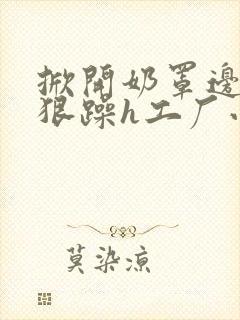 掀開奶罩邊
狠躁h工厂
莫染凉